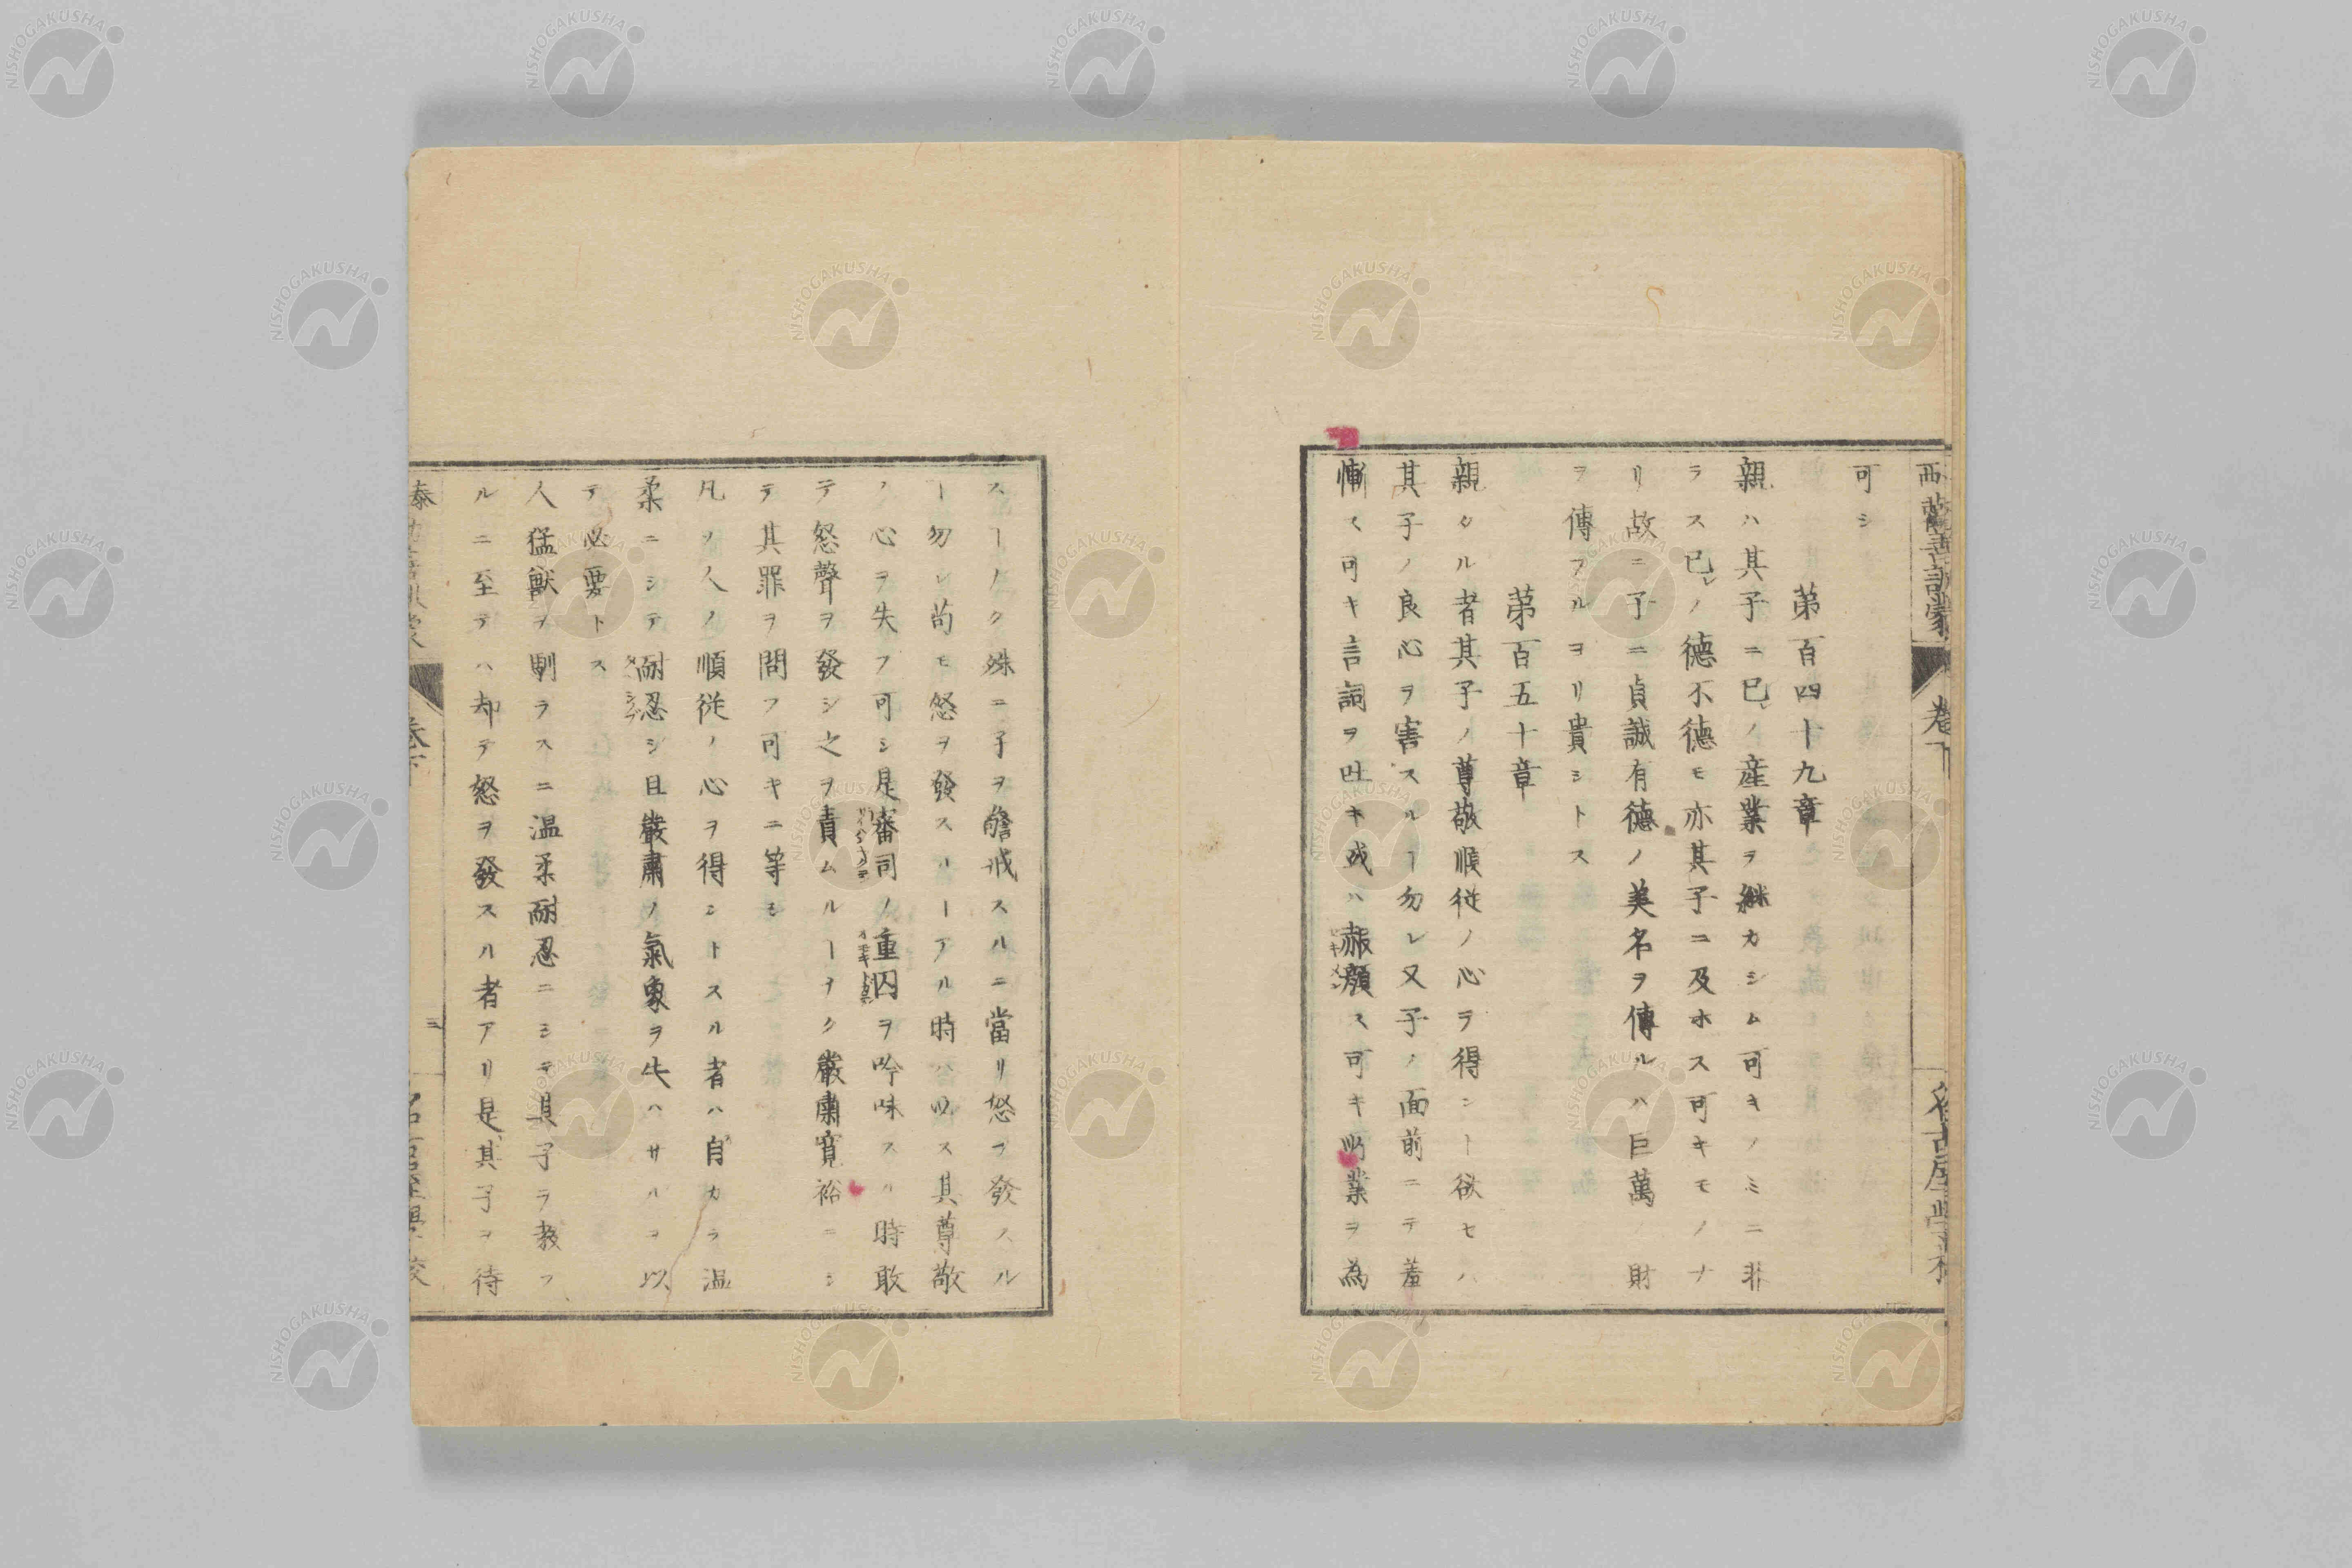 可シ
第百四十九章
親ハ其子ニ已レノ産業ヲ継カシム可キノミニ非
ラス已レノ徳不徳モ亦其子ニ及ホス可キモノナ
リ故ニ子ニ貞誠有徳ノ美名ヲ傳ルハ巨萬ノ財
ヲ傳フルヨリ貴シトス
第百五十章
親タル者其子ノ尊敬順従ノ心ヲ得ント欲セハ
其子ノ良心ヲ害スルヿ勿レ又子ノ面前ニテ羞
慚ス可キ言詞ヲ吐キ或ハ赧顔ス可キ所業ヲ為
スヿノク殊ニ子ヲ譫戒スルニ當リ怒ヲ發スル
ヿ勿レ苟モ怒ヲ發スルヿアル時ハ必ス其尊敬
ノ心ヲ失フ可シ是審司ノ重囚ヲ吟味スル時敢
テ怒聲ヲ發シ之ヲ責ムルヿナク嚴肅寛裕ニシ
テ其罪ヲ問フ可キニ等シ
凡ソ人ノ順従ノ心ヲ得ントスル者ハ自カラ温
柔ニシテ耐忍シ且嚴肅ノ氣象ヲ失ハサルヲ以
テ必要トス
人猛獣ヲ馴ラスニ温柔耐忍ニシテ其子ヲ教フ
ルニ至テハ却テ怒ヲ發スル者アリ是其子ヲ待
卷下